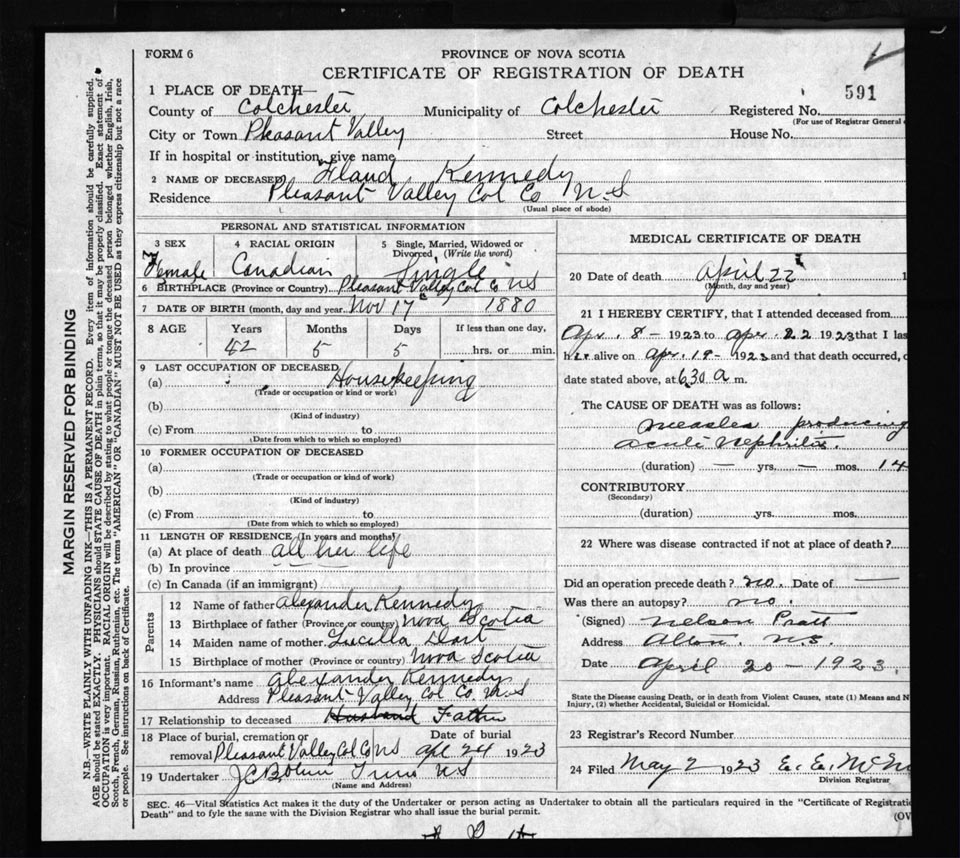 FORM 6
PROVINCE OF NOVA SCOTIA
CERTIFICATE OF REGISTRATION OF DEATH
591
1 PLACE OF DEATH—
County of Colchester Municipality of Colchester Registered No.
(For use of Registrar General
City or Town Pleasant Valley Street House No.
If in hospital or institution, give name
2 NAME OF DECEASED Kennedy
Residence Pleasant Valley Col Co N.S
(Usual place of abode)
PERSONAL AND STATISTICAL INFORMATION
3 SEX Female
4 RACIAL ORIGIN Canadian
5 Single, Married, Widowed or Divorced (Write the word) Single
6 BIRTHPLACE (Province or Country) Pleasant Valley Col Co NS
7 DATE OF BIRTH (month, day and year) Nov 17 1880
8 AGE Years Months Days If less than one day,
42 5 5 hrs. or min.
9 LAST OCCUPATION OF DECEASED
(a) Housekeeping
(Trade or occupation or kind or work)
(b)
(Kind of industry)
(c) From to
(Date from which to which so employed)
10 FORMER OCCUPATION OF DECEASED
(a)
(Trade or occupation or kind of work)
(b)
(Kind of industry)
(c) From to
(Date from which to which so employed)
11 LENGTH OF RESIDENCE (In years and months)
(a) At place of death all her life
(b) In province
(c) In Canada (if an immigrant)
Parents
12 Name of father Alexander Kennedy
13 Birthplace of father (Province or country) Nova Scotia
14 Maiden name of mother Lucilla Dart
15 Birthplace of mother (Province or country) Nova Scotia
16 Informant's name Alexander Kennedy
Address Pleasant Valley Col Co. N.S
17 Relationship to deceased Husband Father
18 Place of burial, cremation or Date of burial
removal Pleasant Valley Col Co NS Apl 24 1923
19 Undertaker NS
(Name and Address)
MEDICAL CERTIFICATE OF DEATH
20 Date of death April 22 1
(Month, day and year)
21 I HEREBY CERTIFY, that I attended deceased from
Apr. 8 - 1923 to Apr. 22 1923 that I las
her alive on Apr. 19 - 1923 and that death occurred, o
date stated above, at 6.30 a m.
The CAUSE OF DEATH was as follows:
Measles producing
acute Nephritis.
(duration) — yrs. — mos. 14
CONTRIBUTORY
(Secondary)
(duration) yrs. mos.
22 Where was disease contracted if not at place of death?
Did an operation precede death? no. Date of —
Was there an autopsy? no.
(Signed) Nelson Pratt
Address N.S.
Date April 20 - 1923.
State the Disease causing Death, or in death from Violent Causes, state (1) Means and N
Injury, (2) whether Accidental, Suicidal or Homicidal.
23 Registrar's Record Number
24 Filed May 2 1923 E. E. McN
Division Registrar
SEC. 46—Vital Statistics Act makes it the duty of the Undertaker or person acting as Undertaker to obtain all the particulars required in the "Certificate of Registratio
Death" and to fyle the same with the Division Registrar who shall issue the burial permit.
(OV
MARGIN RESERVED FOR BINDING
N.B.—WRITE PLAINLY WITH UNFADING INK—THIS IS A PERMANENT RECORD. Every item of information should be carefully supplied.
AGE should be stated EXACTLY. PHYSICIANS should STATE CAUSE OF DEATH in plain terms, so that it may be properly classified. Exact statement of
OCCUPATION is very important. RACIAL ORIGIN will be described by stating to what people or tongue the deceased person belonged whether English, Irish,
Scotch, French, German, Russian, Ruthenian, etc. The terms "AMERICAN" OR "CANADIAN" MUST NOT BE USED as they express citizenship but not a race
or people. See instructions on back of Certificate.